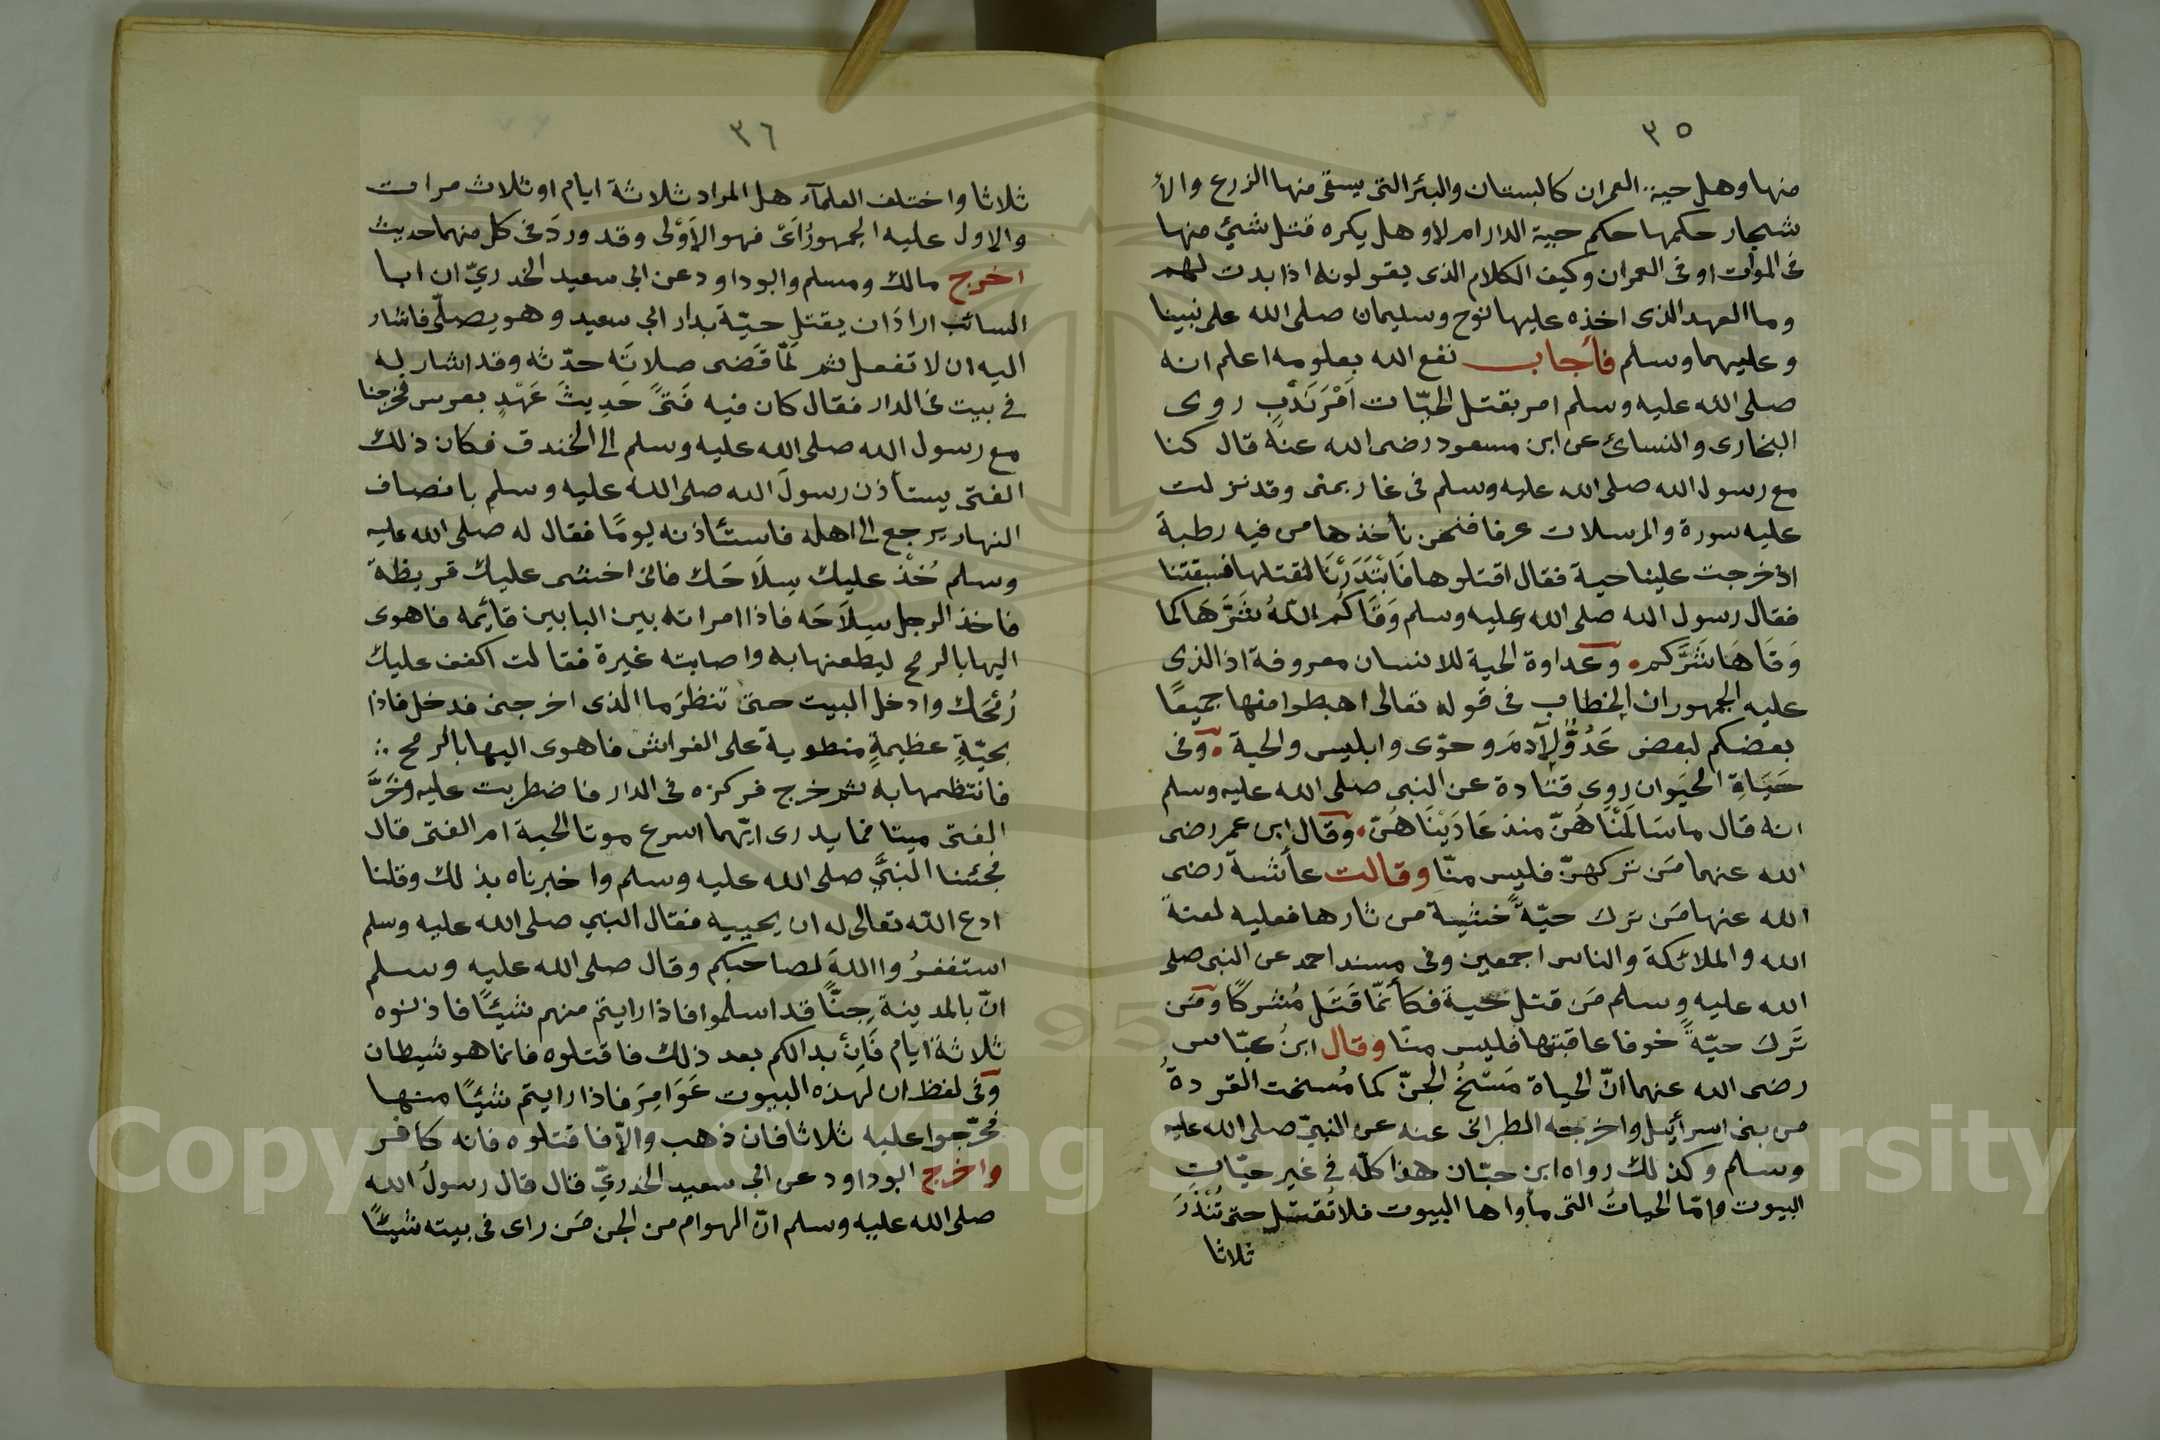 ٣٥
منها وهل حية العمران كالبستان والبئر التى يسقى منها الزرع والأ
شجار حكمها حكم حية الدار ام لا وهل يكره قتل شئ منها
فى الموات او فى العمران وكيف الكلام الذى يقولونه اذا بدت لهم
وما العهد الذى اخذه عليها نوح وسليمان صلى الله على نبينا
وعليهما وسلم فأجاب نفع الله بعلومه اعلم انه
صلى الله عليه وسلم امر بقتل الحيّات أمْرَ نَدْبٍ روى
البخارى والنسائ عن ابن مسعود رضى الله عنه قال كنا
مع رسول الله صلى الله عليه وسلم فى غار بمنى وقد نزلت
عليه سورة والمرسلات عرفا فنحن نأخذها من فيه رطبة
اذ خرجت علينا حية فقال اقتلوها فَابْتَدَرْنَا لنقتلها فسبقتنا
فقال رسول الله صلى الله عليه وسلم وَقَاكُم اللّهُ شَرَّهَا كما
وَقَاهَا شَرَّكم. وعداوة الحية للانسان معروفة اذ الذى
عليه الجمهور ان الخطاب فى قوله تعالى اهبطوا منها جميعًا
بعضكم لبعض عَدُوٌّ لآدمَ وحوّى وابليس والحية. وفى
حَيَاةِ الحَيَوان روى قتادة عن النبى صلى الله عليه وسلم
انه قال ما سَالَمْنَاهُنّ منذ عَادَيْنَاهُنّ. وقال ابن عمر رضى
الله عنهما مَن تركهنّ فليس منّا وقالت عائشة رضى
الله عنها مَن ترك حيّةً خشية من ثارها فعليه لعنة
الله والملائكة والناس اجمعين وفى مسند احمد عن النبى صلى
الله عليه وسلم مَن قتل حية فكأنمّا قَتَل مُشركًا ومَن
تَرك حيّةً خوفا عاقبتها فليس منّا وقال ابنُ عبّاس
رضى الله عنهما انّ الحياة مَسْخُ الجنّ كما مُسخت القردةُ
من بنى اسرائيل واخرجه الطبرانى عنه عن النبيّ صلى الله عليه
وسلم وكذلك رواه ابن حبّان هذا كلّه فى غير حيّاتِ
البيوت وامّا الحياتُ التى مأواها البيوت فلا تُقتل حتى تُنْذَرَ
ثلاثا
٣٦
ثلاثا واختلف العلمآء هل المراد ثلاثة ايام او ثلاث مرات
والاول عليه الجمهورُ اَىّ فهو الأوْلى وقد وردَ فى كل منهما حديث
اخرج مالك ومسلم وابو داود عن ابى سعيد الخدريّ ان ابا
السائب ارادَ ان يقتل حيّة بدار ابى سعيد وهو يصلّى فاشار
اليه ان لا تفعل ثم لَمّا قَضى صلاتَه حدّثه وقد اشار له
فى بيت فى الدار فقال كان فيه فَتىً حَدِيثَ عَهْدٍ بعرس فخرجنا
مع رسول الله صلى الله عليه وسلم الى الخندق فكان ذلك
الفتى يستأذن رسولَ الله صلى الله عليه وسلم بانصاف
النهار يرجع الى اهله فاستئاذنه يومًا فقال له صلى الله عليه
وسلم خُذْ عليك سِلَاحَك فانى اخشى عليك قريظة
فاخذ الرجل سِلَاحَه فاذا امراته بين البابين قائمه فاهوى
اليها بالرمح ليطعنها به واصابته غيرة فقالت اكفف عليك
رُمْحَك وادخل البيت حتى تنظرَ ما الذى اخرجنى فدخل فاذا
بحيّةٍ عظيمةٍ منطوية على الفراش فاهوى اليها بالرمح ؞
فانتظمها به ثم خرج فركزه فى الدار فاضطربت عليه وخَرَّ
الفتى ميتا فما يدرى ايّهما اسرع موتا الحية ام الفتى قال
فجئنا النبىَّ صلى الله عليه وسلم واخبرناه بذلك وقلنا
ادع اللّه تعالى له ان يحييه فقال النبي صلى الله عليه وسلم
استغفرُوا اللهَ لصاحبكم وقال صلى الله عليه وسلم
انّ بالمدينة جِنّاً قد اسلموا فاذا رايتم منهم شيئًا فاذنوه
ثلاثةَ ايام فَاِنْ بدالكم بعد ذلك فاقتلوه فانما هو شيطان
وفى لفظ ان لهذه البيوت عَوَامِرَ فاذا رايتم شيئًا منها
فحرّجوا عليه ثلاثا فان ذهب والاّ فاقتلوه فانه كافر
واخرج ابو داود عن ابى سعيد الخدريّ قال قال رسولُ الله
صلى الله عليه وسلم انّ الهوام من الجن مَن راى فى بيته شيئًا
Copyright © King Saud University